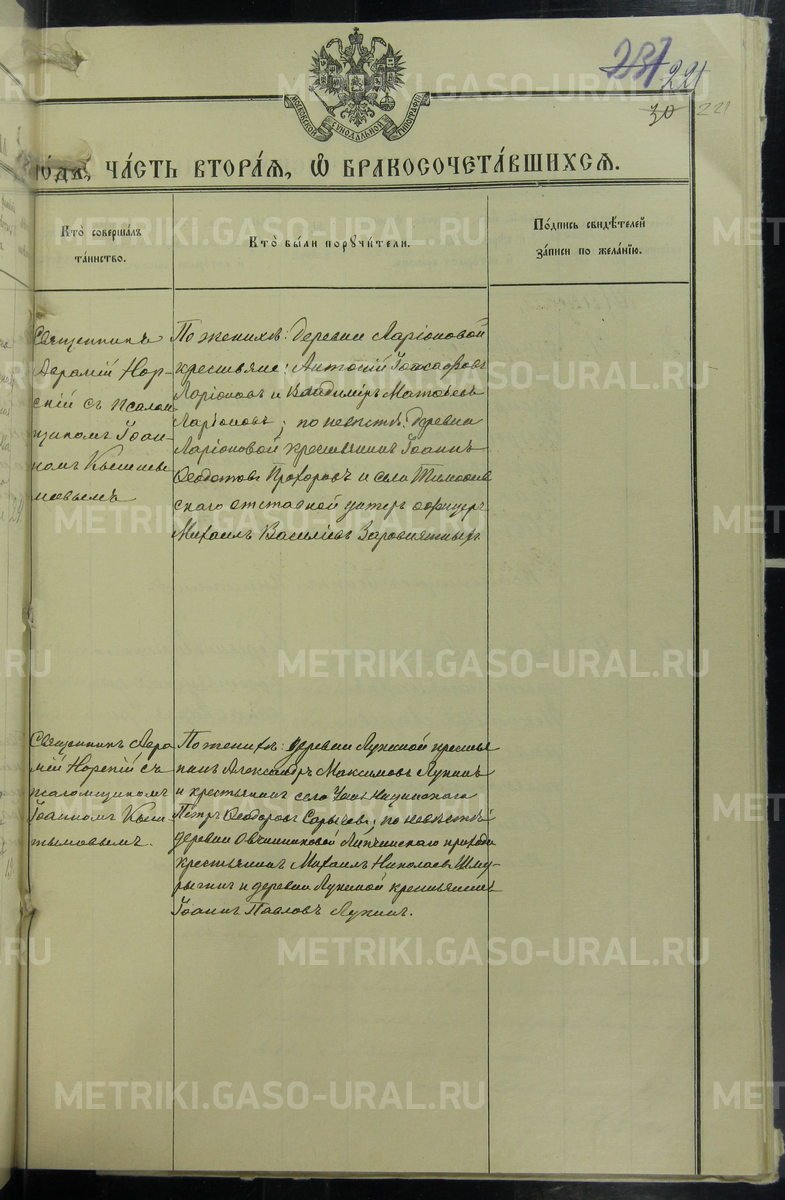 231 221
30 221
МОСКОВСКОЙ СѴНОДАЛЬНОЙ ТИПОГРАФІИ
го́да, ча́сть втора́я, ѡ҆ бракосочета́вшихся.
Кто̀ соверша́лъ
та́инство.
Кто̀ бы́ли порꙋчи́тели.
По́дпись свидѣ́телей
за́писи по жела́нїю.
Священникъ
Аврамій Нор-
скій съ псалом
щикомъ Іоан-
номъ Кышты
мовымъ
По женихѣ: деревни Ларіоновой
крестьяне: Антоній Іоасафовъ
Ларіоновъ и Владиміръ Матвѣевъ
Ларіоновъ; по невѣстѣ: деревни
Ларіоновой крестьянинъ Іоаннъ
Ѳеодотовъ Прохоровъ и села Тимофеев
скаго отставной унтеръ офицеръ
Михаилъ Василіевъ
Священникъ Авра
мій Норскій съ
псаломщикомъ
Іоанномъ Кыш
тымовымъ.
По женихѣ: деревни Лукиной крестья
нинъ Александръ Максимовъ Лукинъ
и крестьянинъ села Усть Ницинскаго
Петръ Ѳеодоровъ Сарычевъ; по невѣстѣ:
деревни Овчинниковой Липчинскаго прихода
крестьянинъ Михаилъ Николаевъ Шму-
рыгинъ и деревни Лукиной крестьянинъ
Іоаннъ Павловъ Лукинъ.
METRIKI.GASO-URAL.RU